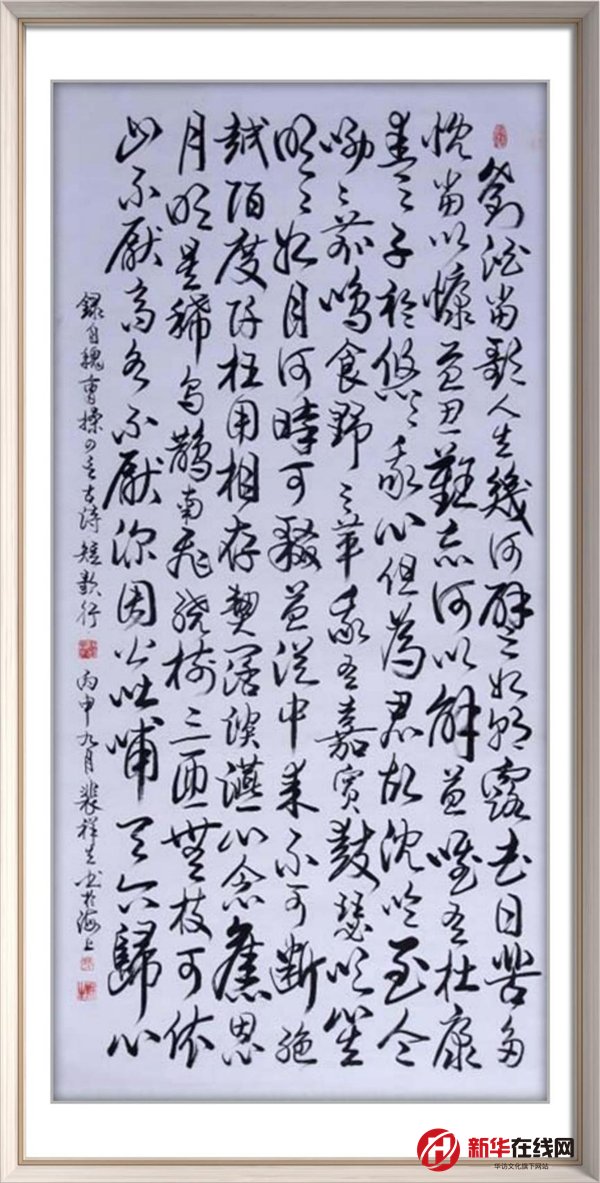 對酒當歌人生幾何譬如朝露去日苦多
慨當以慷憂思難忘何以解憂唯有杜康
青〻子衿悠〻我心但為君故沈吟至今
呦〻鹿鳴食野之苹我有嘉賓鼓瑟吹笙
明〻如月何時可掇憂從中來不可斷絕
越陌度阡枉用相存契闊談讌心念舊恩
月明星稀烏鵲南飛繞樹三匝無枝可依
山不厭高水不厭深周公吐哺天下歸心
錄自魏曹操四言古詩短歌行 丙申九月裴祥生書於海上
新华在线网
华访文化旗下网站